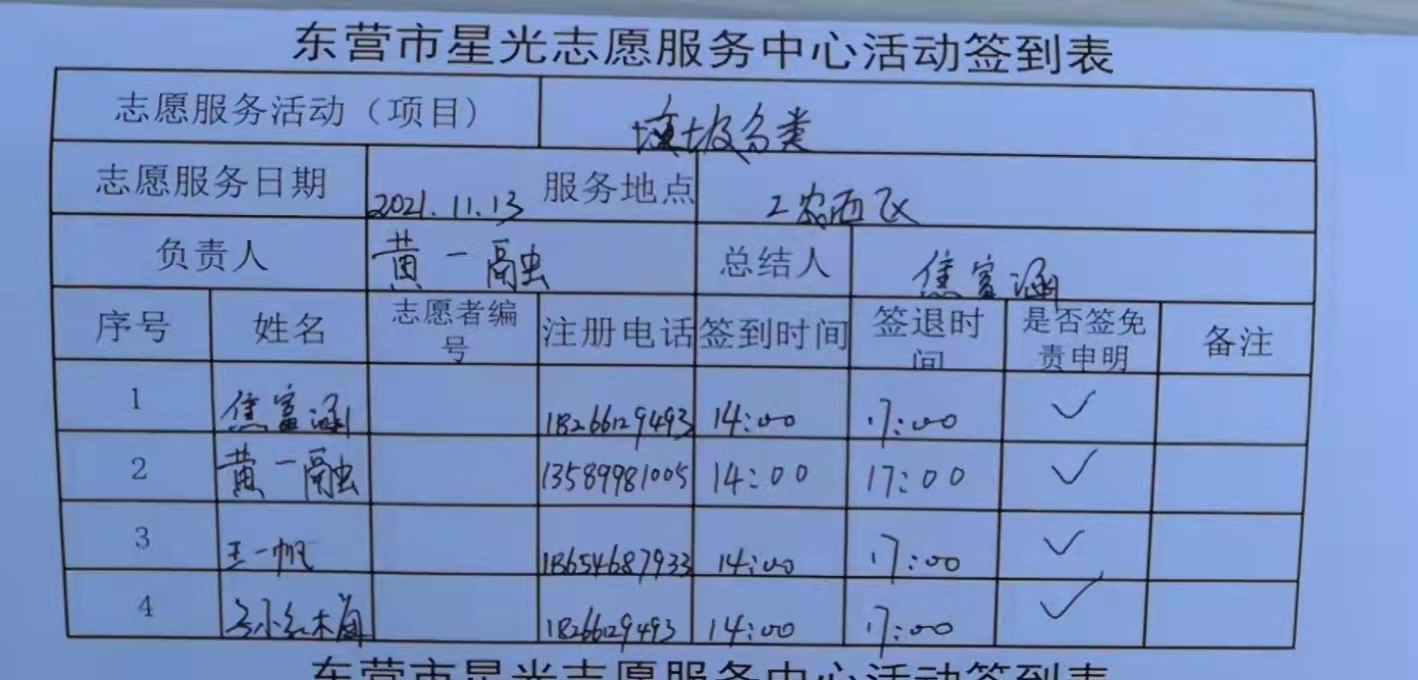 东营市星光志愿服务中心活动签到表
志愿服务活动（项目） 垃圾分类
志愿服务日期 2021.11.13 服务地点 工农西区
负责人 黄一融 总结人 焦富涵
序号 姓名 志愿者编号 注册电话 签到时间 签退时间 是否签免责申明 备注
1 焦富涵 18266129493 14:00 17:00 ✓
2 黄一融 13589981005 14:00 17:00 ✓
3 王一帆 18654687933 14:00 17:00 ✓
4 18266129493 14:00 17:00 ✓
东营市星光志愿服务中心活动签到表